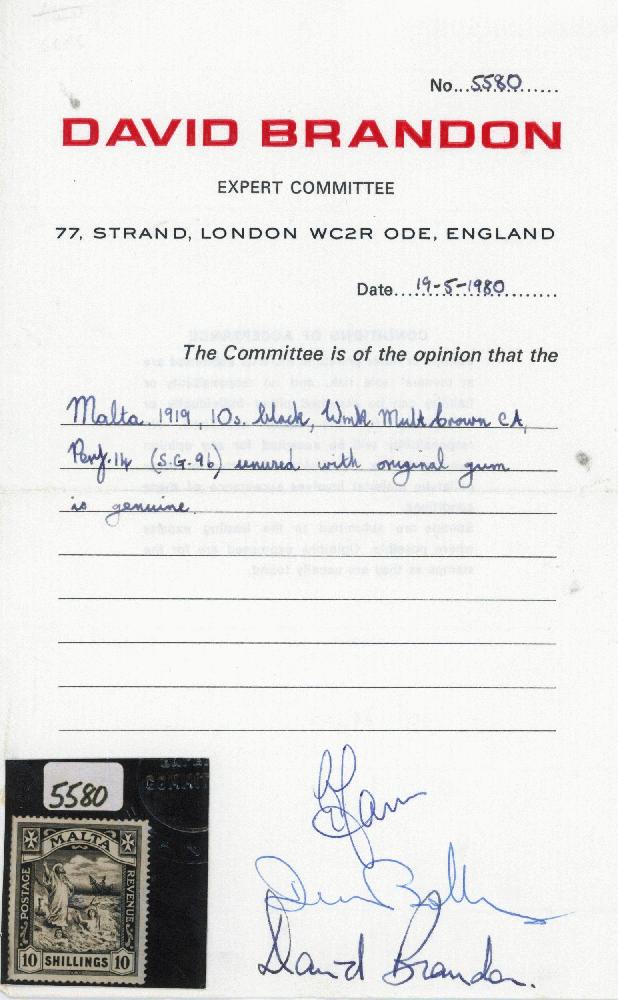 No...5580......
DAVID BRANDON
EXPERT COMMITTEE
77, STRAND, LONDON WC2R ODE, ENGLAND
Date....19-5-1980.........
The Committee is of the opinion that the
Malta. 1919, 10s. black, Wmk. Mult crown CA,
Perf. 14 (S.G. 96) unused with original gum
is genuine.
5580
MALTA
POSTAGE
REVENUE
10 SHILLINGS 10
David Brandon.